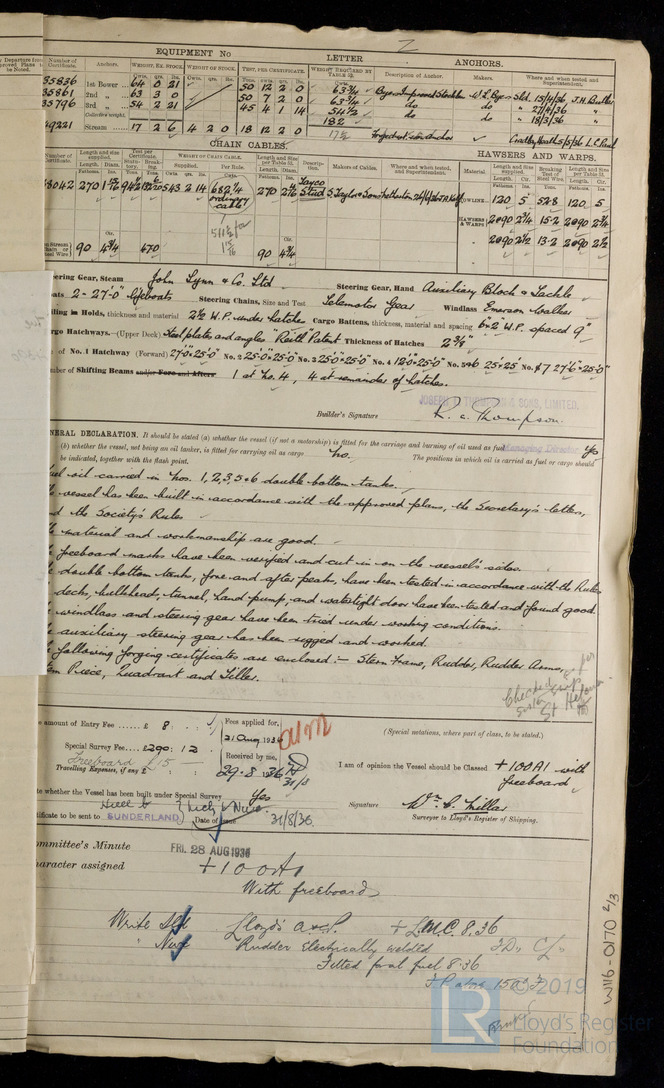 EQUIPMENT No LETTER Z ANCHORS.
Number of Certificate. Anchors. WEIGHT, EX. STOCK. WEIGHT OF STOCK. TEST, PER CERTIFICATE. WEIGHT REQUIRED BY TABLE Description of Anchor. Makers. Where and when tested and Superintendent.
35836 1st Bower 64 0 21 50 12 2 0 63 3/4 Byers Improved Stockless W. L. Byers Sld. 15/4/36 J.H. Butler
35861 2nd " 63 3 0 50 7 2 0 63 3/4 do do " 27/4/36 "
35796 3rd " 54 2 21 45 4 1 14 54 1/2 do do " 18/3/36 "
Collective weight. 182
49221 Stream 17 2 6 4 2 0 18 12 2 0 17 1/2 Cradley Heath 5/5/36 L.C. Paul
CHAIN CABLES. HAWSERS AND WARPS.
Number of Certificate. Length and size supplied. Test per Certificate. WEIGHT OF CHAIN CABLE. Length and Size per Table Description. Makers of Cables. Where and when tested, and Superintendent. Material. Length and Size supplied. Breaking Test of Steel Wire. Length and Size per Table
270 543 2 14 682 1/4 270 Tayco Stud S. Taylor & Sons TOWLINE 120 5 52.8 120 5
ordinary cable
HAWSERS & WARPS 2@90 2 3/4 15.2 2@90 2 3/4
2@90 2 1/2 13.2 2@90 2 1/2
90 4 3/4 470 90 4 3/4
Steering Gear, Steam John Lynn & Co. Ltd Steering Gear, Hand Auxiliary Block & Tackle
Boats 2 - 27'-0" lifeboats Steering Chains, Size and Test Telemotor Gear Windlass Emerson Walker
Ceiling in Holds, thickness and material 2 1/2 W.P. under hatches Cargo Battens, thickness, material and spacing 6 x 2 W.P. spaced 9"
Cargo Hatchways.—(Upper Deck) Steel plates and angles "Reith" Patent Thickness of Hatches 2 3/8"
of No. 1 Hatchway (Forward) 27'0" x 25'-0" No. 2 25'-0" x 25'-0" No. 3 25'-0" x 25'-0" No. 4 12'0" x 25'-0" No. 5 & 6 25' x 25' No. 7 27'6" x 25'-0"
Number of Shifting Beams and/or Fore and Afters 1 at No. 4, 4 at remainder of hatches.
JOSEPH L. THOMPSON & SONS, LIMITED.
Builder's Signature R. C. Thompson
Managing Director
GENERAL DECLARATION. It should be stated (a) whether the vessel (if not a motorship) is fitted for the carriage and burning of oil used as fuel Yes
(b) whether the vessel, not being an oil tanker, is fitted for carrying oil as cargo No. The positions in which oil is carried as fuel or cargo should
be indicated, together with the flash point.
fuel oil carried in Nos. 1, 2, 3, 5 & 6 double bottom tanks.
vessel has been built in accordance with the approved plans, the Secretary's letters,
and the Society's Rules
material and workmanship are good
freeboard marks have been verified and cut in on the vessel's sides.
double bottom tanks, fore and after peaks, have been tested in accordance with the Rules
decks, bulkheads, tunnel, hand pump, and watertight door have been tested and found good
windlass and steering gear have been tried under working conditions.
auxiliary steering gear has been rigged and worked.
following forging certificates are enclosed :- Stern Frame, Rudder, Rudder Arms,
Stem Piece, Quadrant and Tiller.
Checked
amount of Entry Fee ...... £ 8 : :
Fees applied for,
21 Aug 1936
(Special notations, where part of class, to be stated.)
Special Survey Fee.... £290 : 12 :
Received by me,
Freeboard £15 —
Travelling Expenses, if any £ : :
29.8.1936
I am of opinion the Vessel should be Classed +100A1 with
freeboard
state whether the Vessel has been built under Special Survey Yes
Signature Wm. C. Millar
Certificate to be sent to SUNDERLAND Date of issue 31/8/36
Surveyor to Lloyd's Register of Shipping.
Committee's Minute FRI. 28 AUG 1936
Character assigned +100A1
With freeboard
Write Sld Lloyd's A & C.P. + LMC 8.36
Rudder Electrically welded F.D. C/-
Fitted for oil fuel 8.36
F.P. above 150° F
W116-0170 2/3
LR
© 2019
Lloyd's Register
Foundation